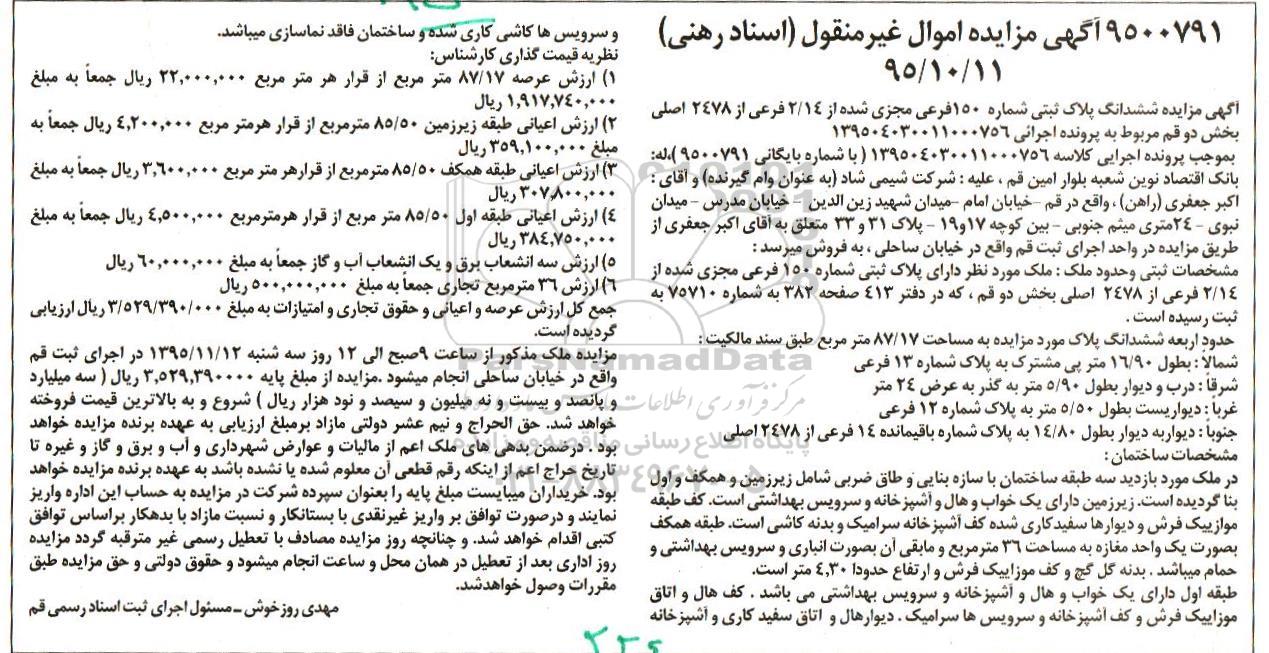 ۹۵۰۰۷۹۱ آگهی مزایده اموال غیرمنقول (اسناد رهنی)
۹۵/۱۰/۱۱
آگهی مزایده ششدانگ پلاک ثبتی شماره ۱۵۰فرعی مجزی شده از ۲/۱۴ فرعی از ۲۴۷۸ اصلی
بخش دو قم مربوط به پرونده اجرائی ۱۳۹۵۰۴۰۳۰۰۱۱۰۰۰۷۵۶
بموجب پرونده اجرایی کلاسه ۱۳۹۵۰۴۰۳۰۰۱۱۰۰۰۷۵۶ ( با شماره بایگانی ۹۵۰۰۷۹۱ )،له:
بانک اقتصاد نوین شعبه بلوار امین قم ، علیه : شرکت شیمی شاد (به عنوان وام گیرنده) و آقای :
اکبر جعفری (راهن) ، واقع در قم -خیابان امام -میدان شهید زین الدین - خیابان مدرس - میدان
نبوی - ۲۴متری میثم جنوبی - بین کوچه ۱۷و۱۹ - پلاک ۳۱ و ۳۳ متعلق به آقای اکبر جعفری از
طریق مزایده در واحد اجرای ثبت قم واقع در خیابان ساحلی ، به فروش میرسد :
مشخصات ثبتی وحدود ملک : ملک مورد نظر دارای پلاک ثبتی شماره ۱۵۰ فرعی مجزی شده از
۲/۱۴ فرعی از ۲۴۷۸ اصلی بخش دو قم ، که در دفتر ۴۱۳ صفحه ۳۸۲ به شماره ۷۵۷۱۰ به
ثبت رسیده است .
حدود اربعه ششدانگ پلاک مورد مزایده به مساحت ۸۷/۱۷ متر مربع طبق سند مالکیت :
شمالاً : بطول ۱۶/۹۰ متر پی مشترک به پلاک شماره ۱۳ فرعی
شرقاً : درب و دیوار بطول ۵/۹۰ متر به گذر به عرض ۲۴ متر
غرباً : دیواریست بطول ۵/۵۰ متر به پلاک شماره ۱۲ فرعی
جنوباً : دیواربه دیوار بطول ۱۴/۸۰ به پلاک شماره باقیمانده ۱۴ فرعی از ۲۴۷۸ اصلی
مشخصات ساختمان :
در ملک مورد بازدید سه طبقه ساختمان با سازه بنایی و طاق ضربی شامل زیرزمین و همکف و اول
بنا گردیده است. زیرزمین دارای یک خواب و هال و آشپزخانه و سرویس بهداشتی است. کف طبقه
موازییک فرش و دیوارها سفیدکاری شده کف آشپزخانه سرامیک و بدنه کاشی است. طبقه همکف
بصورت یک واحد مغازه به مساحت ۳۶ مترمربع و مابقی آن بصورت انباری و سرویس بهداشتی و
حمام میباشد . بدنه گل گچ و کف موزاییک فرش و ارتفاع حدودا ۴,۳۰ متر است.
طبقه اول دارای یک خواب و هال و آشپزخانه و سرویس بهداشتی می باشد . کف هال و اتاق
موزاییک فرش و کف آشپزخانه و سرویس ها سرامیک . دیوارهال و اتاق سفید کاری و آشپزخانه
و سرویس ها کاشی کاری شده و ساختمان فاقد نماسازی میباشد.
نظریه قیمت گذاری کارشناس:
۱) ارزش عرصه ۸۷/۱۷ متر مربع از قرار هر متر مربع ۲۲,۰۰۰,۰۰۰ ریال جمعاً به مبلغ
۱,۹۱۷,۷۴۰,۰۰۰ ریال
۲) ارزش اعیانی طبقه زیرزمین ۸۵/۵۰ مترمربع از قرار هرمتر مربع ۴,۲۰۰,۰۰۰ ریال جمعاً به
مبلغ ۳۵۹,۱۰۰,۰۰۰ ریال
۳) ارزش اعیانی طبقه همکف ۸۵/۵۰ مترمربع از قرارهر متر مربع ۳,۶۰۰,۰۰۰ ریال جمعاً به مبلغ
۳۰۷,۸۰۰,۰۰۰ ریال
۴) ارزش اعیانی طبقه اول ۸۵/۵۰ متر مربع از قرار هرمترمربع ۴,۵۰۰,۰۰۰ ریال جمعاً به مبلغ
۳۸۴,۷۵۰,۰۰۰ ریال
۵) ارزش سه انشعاب برق و یک انشعاب آب و گاز جمعاً به مبلغ ۶۰,۰۰۰,۰۰۰ ریال
۶) ارزش ۳۶ مترمربع تجاری جمعاً به مبلغ ۵۰۰,۰۰۰,۰۰۰ ریال
جمع کل ارزش عرصه و اعیانی و حقوق تجاری و امتیازات به مبلغ ۳/۵۲۹/۳۹۰/۰۰۰ ریال ارزیابی
گردیده است.
مزایده ملک مذکور از ساعت ۹صبح الی ۱۲ روز سه شنبه ۱۳۹۵/۱۱/۱۲ در اجرای ثبت قم
واقع در خیابان ساحلی انجام میشود .مزایده از مبلغ پایه ۳,۵۲۹,۳۹۰۰۰۰ ریال ( سه میلیارد
و پانصد و بیست و نه میلیون و سیصد و نود هزار ریال ) شروع و به بالاترین قیمت فروخته
خواهد شد. حق الحراج و نیم عشر دولتی مازاد برمبلغ ارزیابی به عهده برنده مزایده خواهد
بود . درضمن بدهی های ملک اعم از مالیات و عوارض شهرداری و آب و برق و گاز و غیره تا
تاریخ حراج اعم از اینکه رقم قطعی آن معلوم شده یا نشده باشد به عهده برنده مزایده خواهد
بود. خریداران میبایست مبلغ پایه را بعنوان سپرده شرکت در مزایده به حساب این اداره واریز
نمایند و درصورت توافق بر واریز غیرنقدی با بستانکار و نسبت مازاد با بدهکار براساس توافق
کتبی اقدام خواهد شد. و چنانچه روز مزایده مصادف با تعطیل رسمی غیر مترقبه گردد مزایده
روز اداری بعد از تعطیل در همان محل و ساعت انجام میشود و حقوق دولتی و حق مزایده طبق
مقررات وصول خواهدشد.
مهدی روزخوش - مسئول اجرای ثبت اسناد رسمی قم
ParsNamadData
مرکز فرآوری اطلاعات
پایگاه اطلاع رسانی مناقصه و مزایده
۰۲۱-۸۸۳۴۹۶۷۰-۵